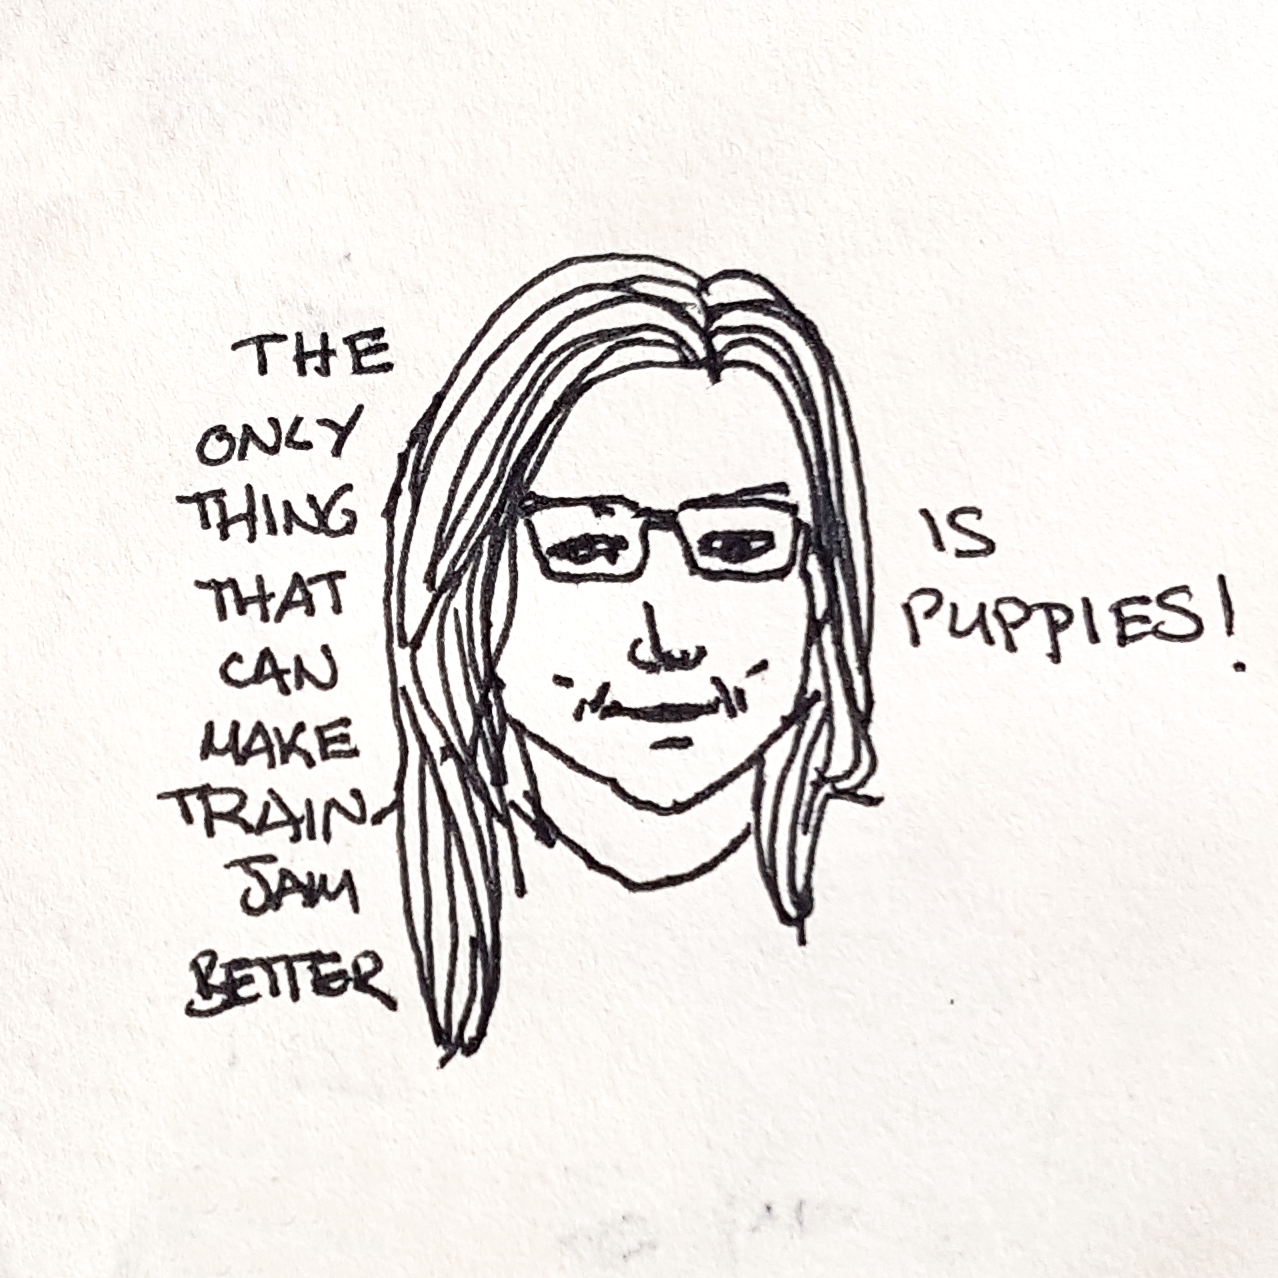 THE
ONLY
THING
THAT
CAN
MAKE
TRAIN
JAM
BETTER
IS
PUPPIES!